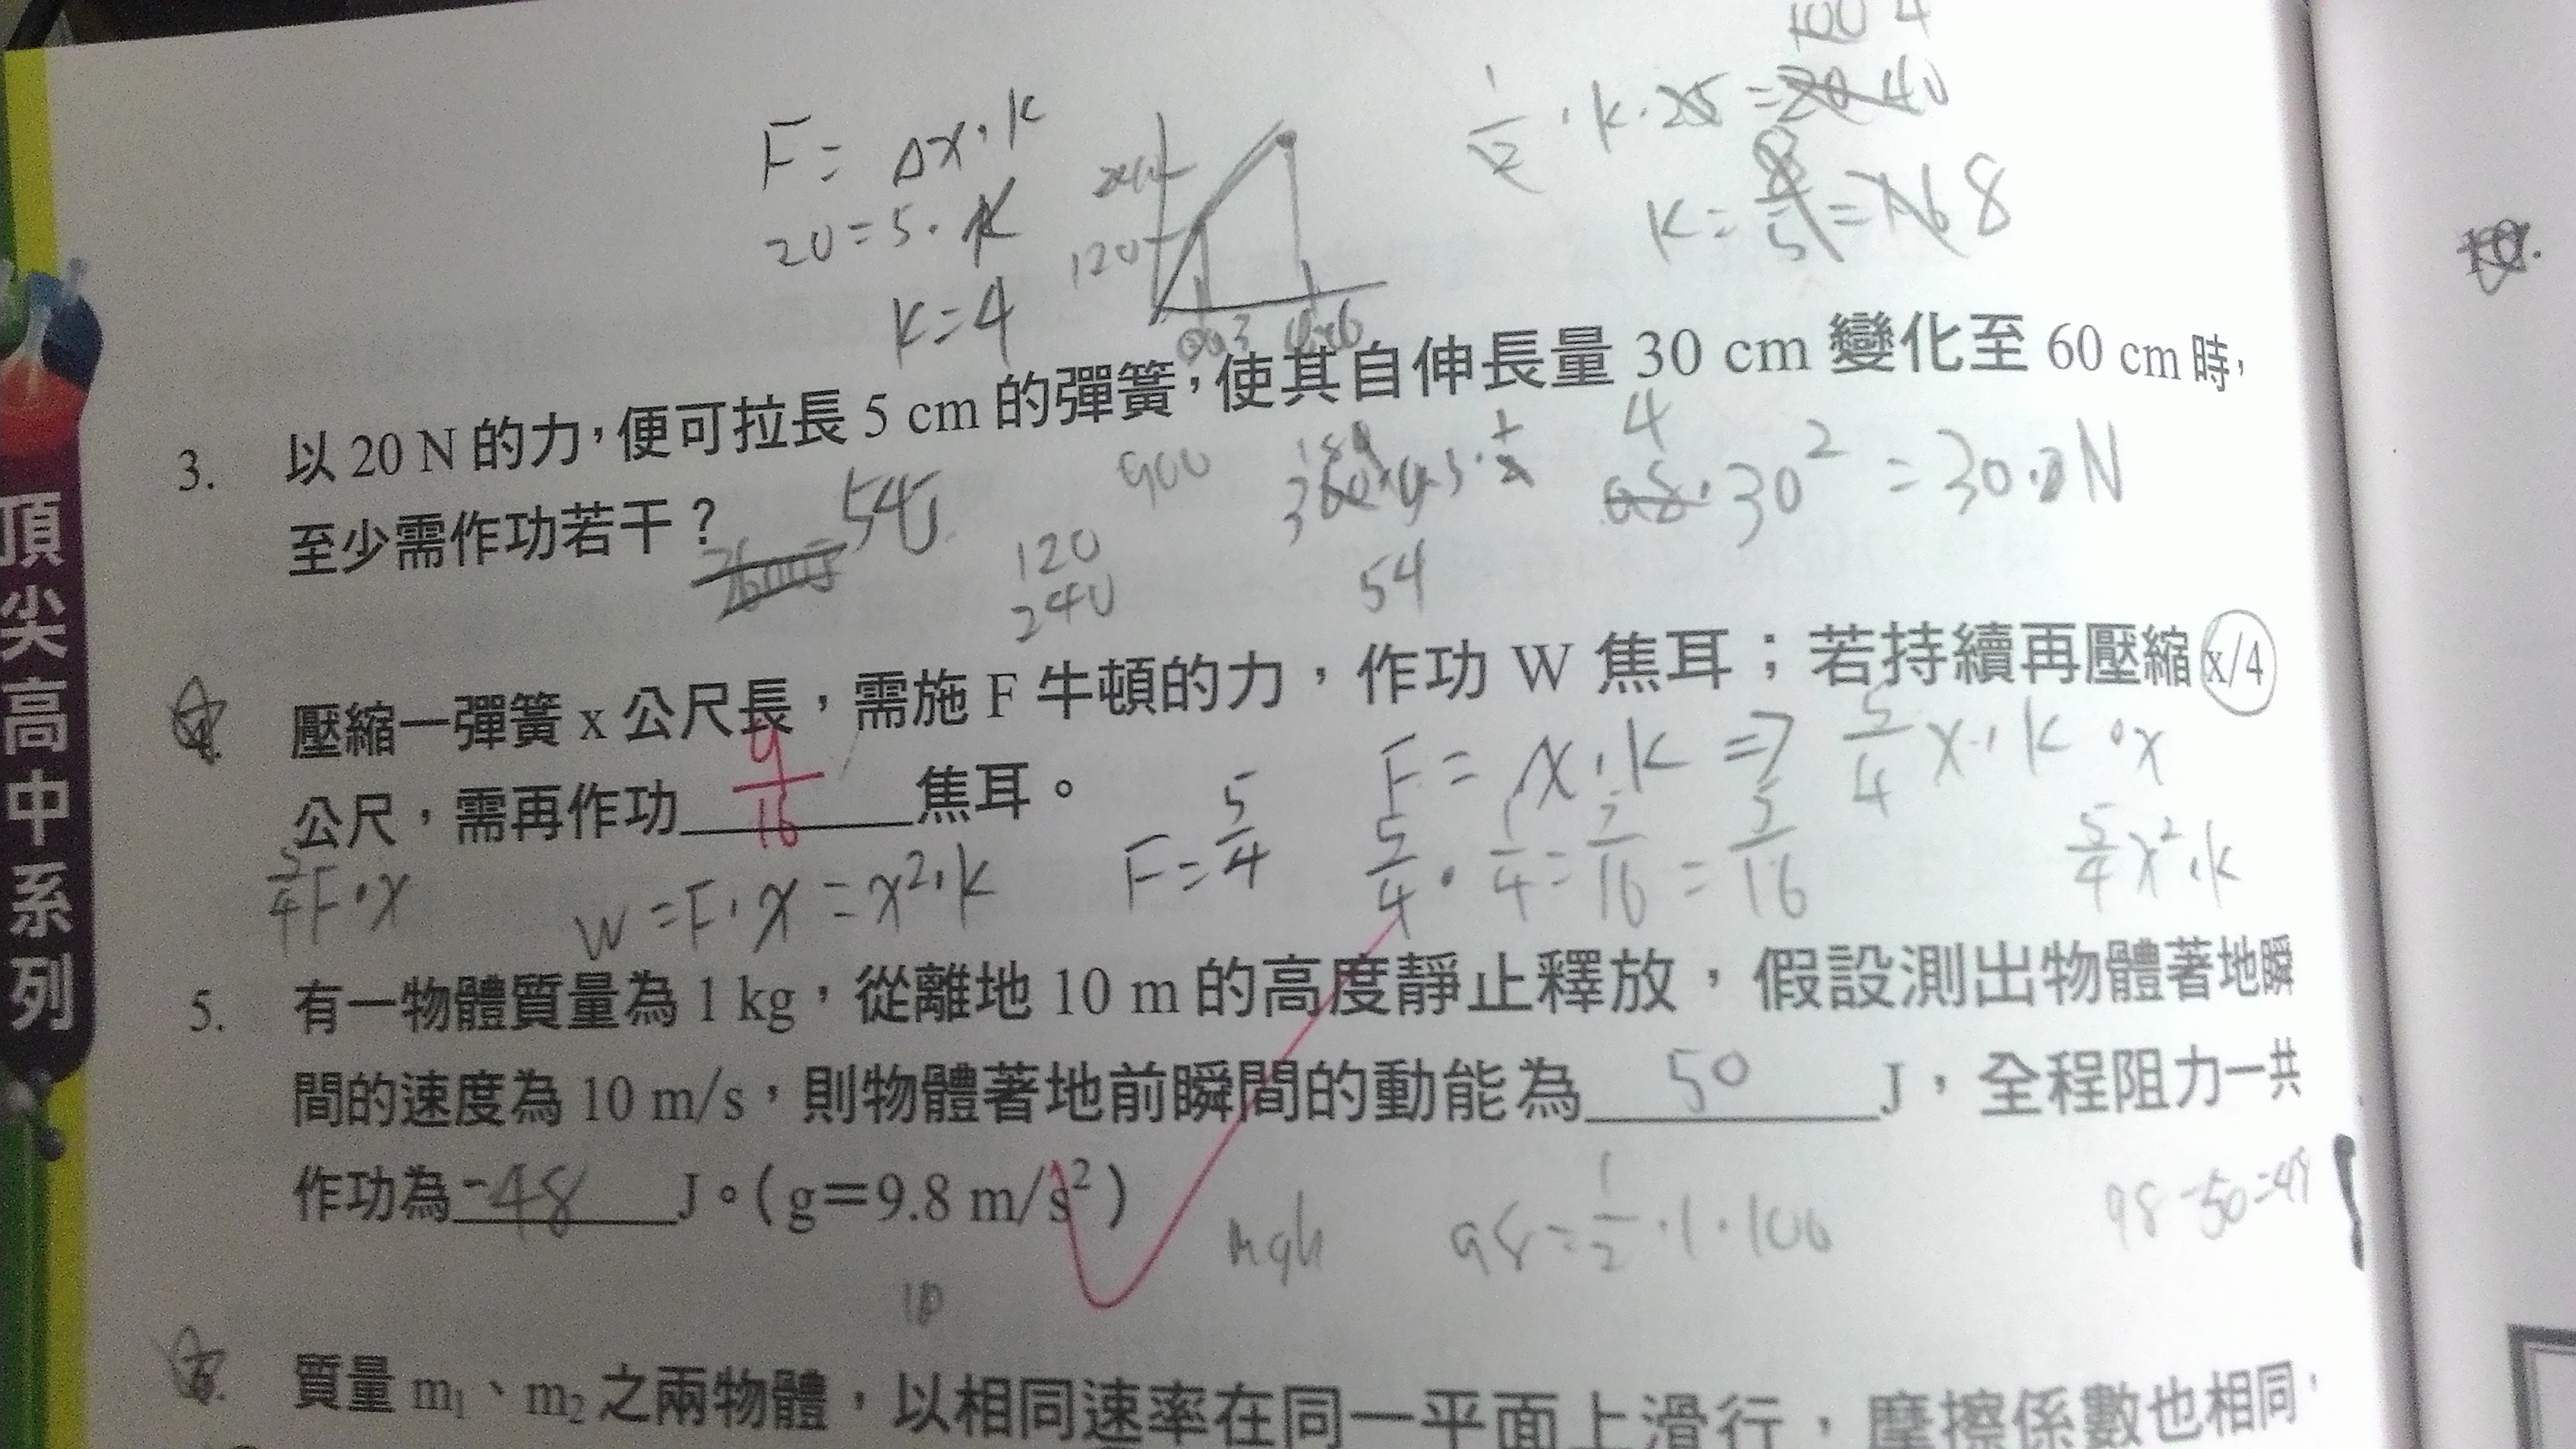 100 4
F = Δx · k
1/2 · k · 25 = 20 40
20 = 5 · k
240
120
k = 8/5 = 1.6 8
k = 4
0.3 0.6
10.
3. 以 20 N 的力，便可拉長 5 cm 的彈簧，使其自伸長量 30 cm 變化至 60 cm 時，
至少需作功若干？ 54J
900
4
· 30² = 30 · N
120
240
54
4. 壓縮一彈簧 x 公尺長，需施 F 牛頓的力，作功 W 焦耳；若持續再壓縮 x/4
公尺，需再作功 9/16 焦耳。
F = x · k ⇒ 5/4 x · k · x
5/4 F · x
W = F · x = x² · k
F = 5/4
5/4 · 1/4 = 5/16 = 5/16
5/4 x² · k
5. 有一物體質量為 1 kg，從離地 10 m 的高度靜止釋放，假設測出物體著地瞬
間的速度為 10 m/s，則物體著地前瞬間的動能為 50 J，全程阻力一共
作功為 -48 J。（g＝9.8 m/s²）
mgh
98 = 1/2 · 1 · 100
98 - 50 = 48
10
6. 質量 m₁、m₂ 之兩物體，以相同速率在同一平面上滑行，摩擦係數也相同，
頂尖高中系列